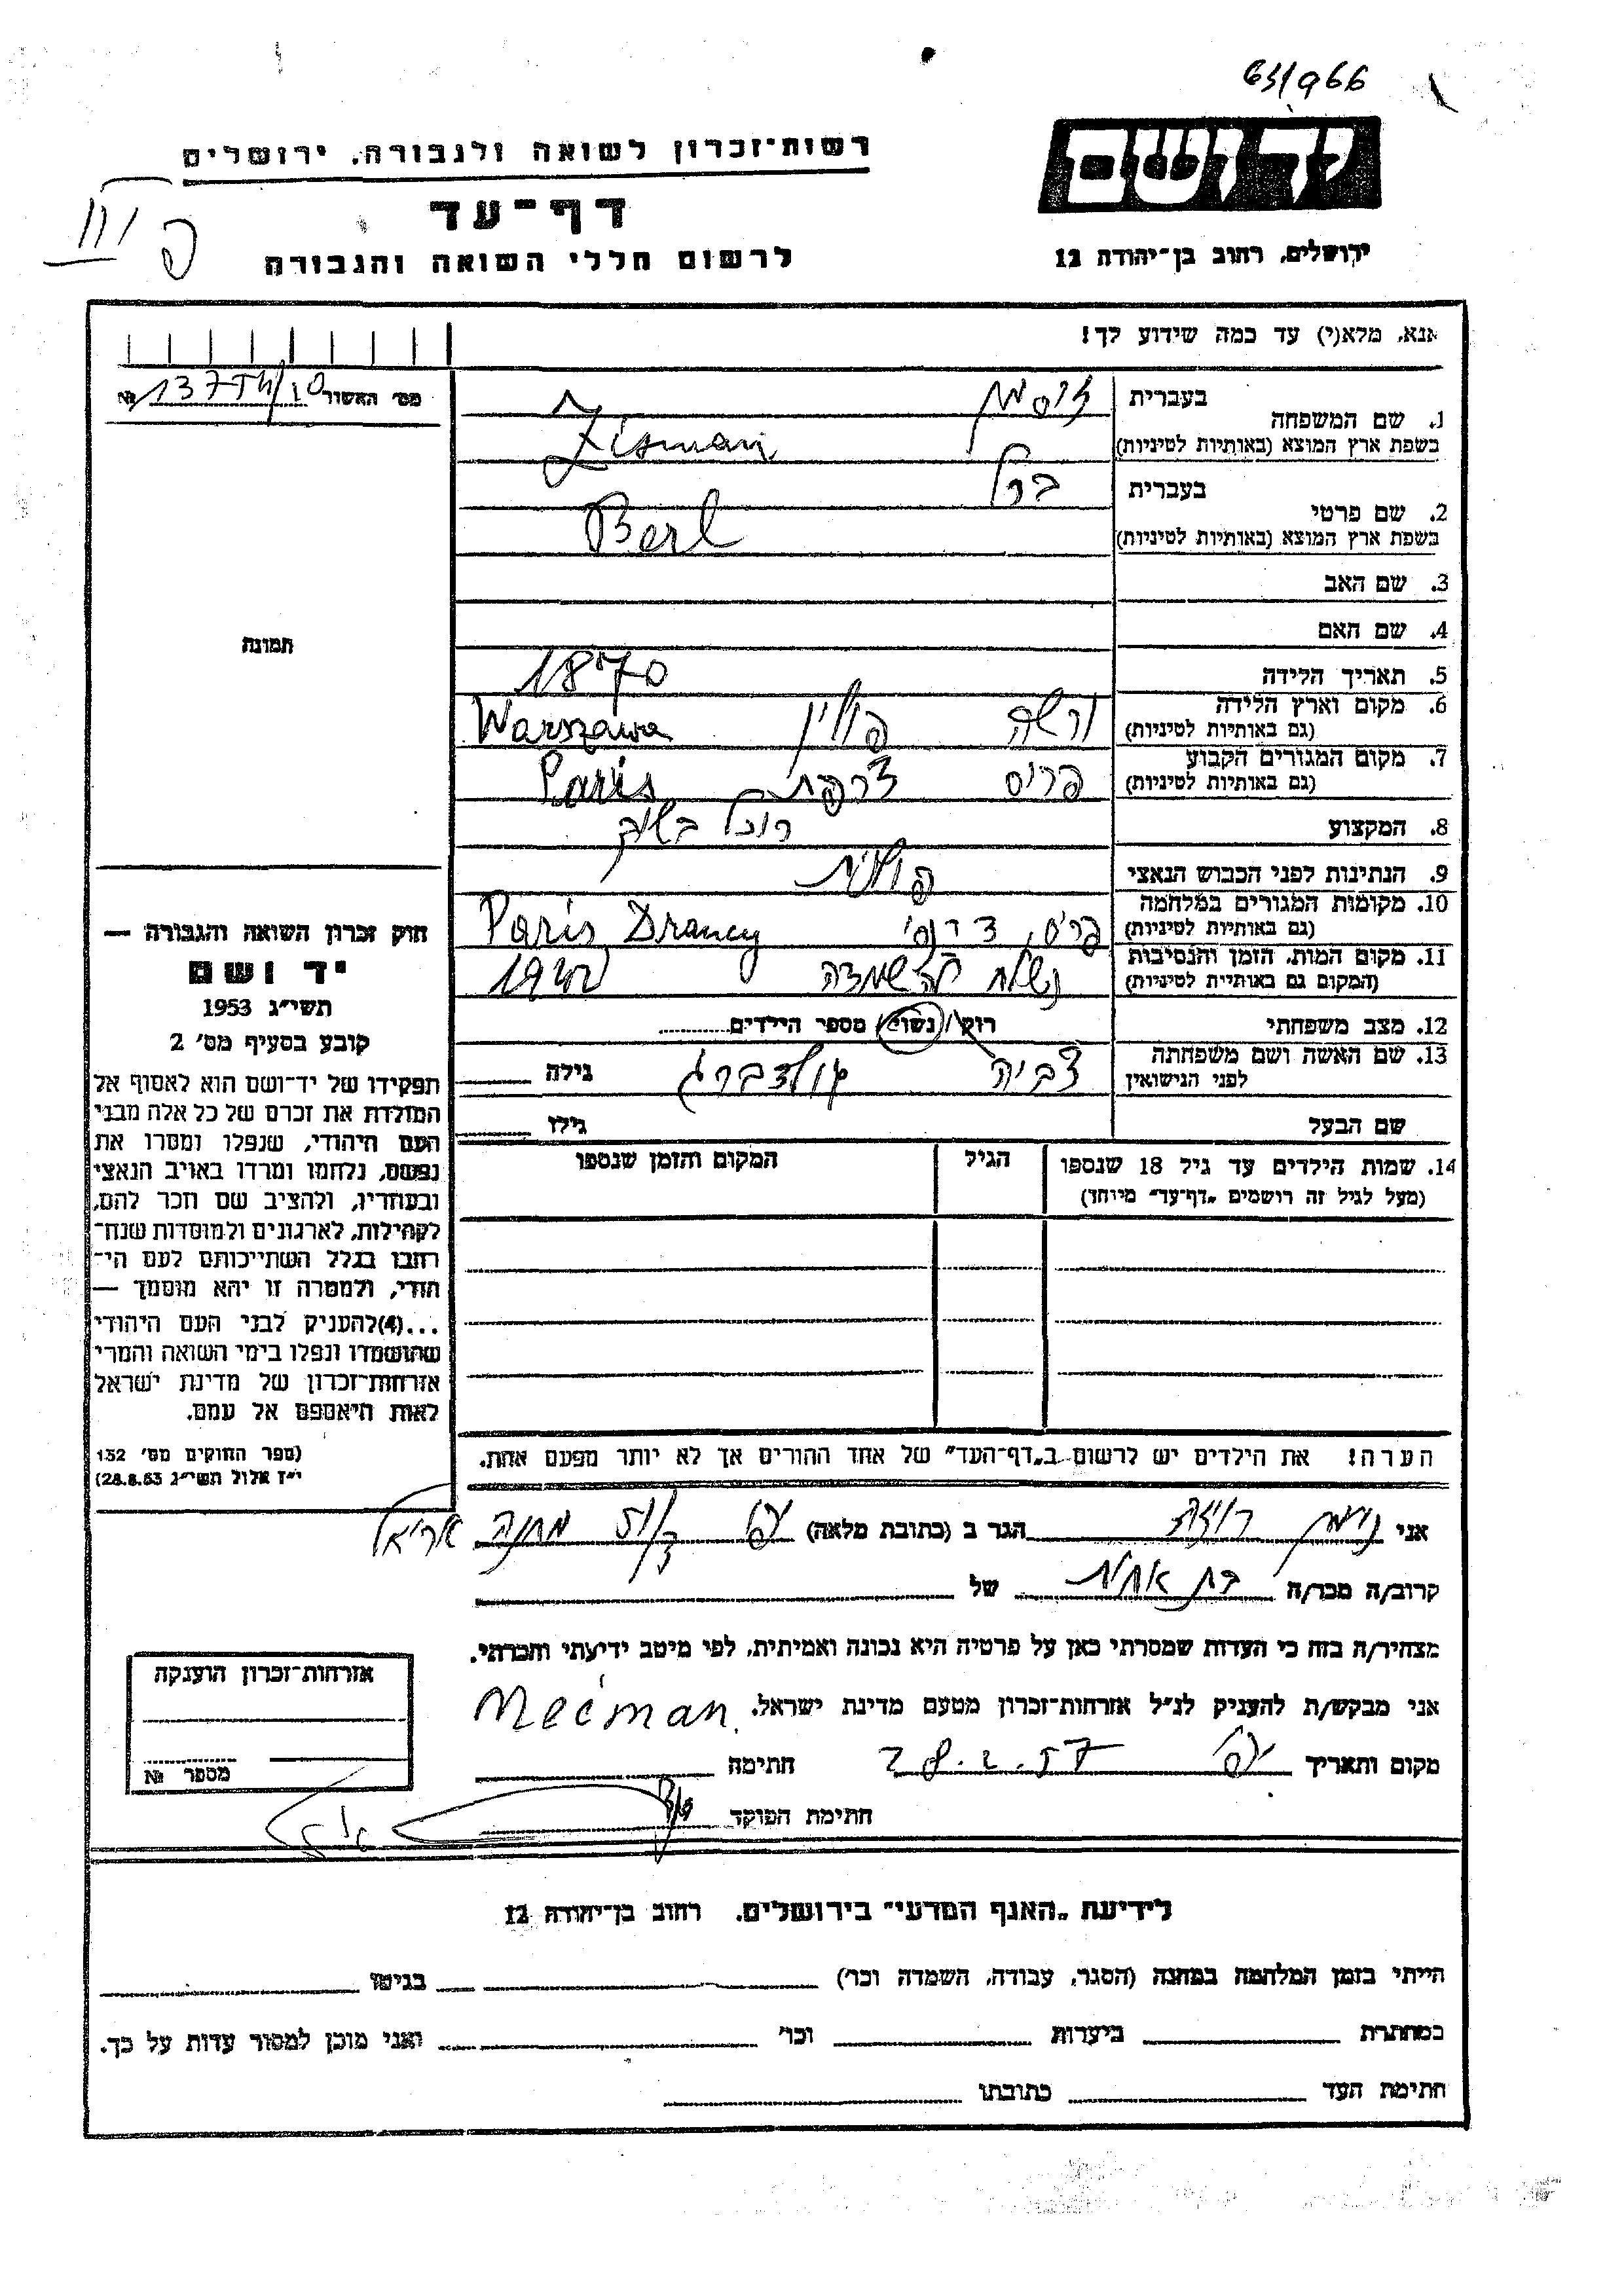 63/966
יד ושם
רשות־זכרון לשואה ולגבורה, ירושלים
דף־עד
לרשום חללי השואה והגבורה
ירושלים, רחוב בן־יהודה 12
III פ
אנא, מלא(י) עד כמה שידוע לך!
מס' האשור № 137 Th/10
1. שם המשפחה בעברית זיסמן
בשפת ארץ המוצא (באותיות לטיניות) Zisman
2. שם פרטי בעברית ברל
בשפת ארץ המוצא (באותיות לטיניות) Berl
3. שם האב
4. שם האם
תמונה
5. תאריך הלידה 1870
6. מקום וארץ הלידה (גם באותיות לטיניות) ורשה פולין Warszawa
7. מקום המגורים הקבוע (גם באותיות לטיניות) פריס צרפת Paris
8. המקצוע רוכל בשוק
9. הנתינות לפני הכבוש הנאצי פולנית
10. מקומות המגורים במלחמה (גם באותיות לטיניות) פריס, דרנסי Paris Drancy
11. מקום המות, הזמן והנסיבות (המקום גם באותיית לטיניות) נשלח להשמדה 1942
12. מצב משפחתי רוק/נשוי/ מספר הילדים
13. שם האשה ושם משפחתה לפני הנישואין צביה גולדברג גילה
שם הבעל גילו
14. שמות הילדים עד גיל 18 שנספו הגיל המקום והזמן שנספו
(מעל לגיל זה רושמים „דף־עד" מיוחד)
חוק זכרון השואה והגבורה —
יד ושם
תשי"ג 1953
קובע בסעיף מס' 2
תפקידו של יד־ושם הוא לאסוף אל
המולדת את זכרם של כל אלה מבני
העם היהודי, שנפלו ומסרו את
נפשם, נלחמו ומרדו באויב הנאצי
ובעוזריו, ולהציב שם וזכר להם,
לקהילות, לארגונים ולמוסדות שנח־
רחבו בגלל השתייכותם לעם הי־
הודי, ולמטרה זו יהא מוסמך —
...(4)להעניק לבני העם היהודי
שהושמדו ונפלו בימי השואה והמרי
אזרחות־זכרון של מדינת ישראל
לאות היאספם אל עמם.
(ספר החוקים מס' 132
י"ז אלול תשי"ג 28.8.53)
הערה! את הילדים יש לרשום ב„דף־העד" של אחד ההורים אך לא יותר מפעם אחת.
אני נוימן רויזה הגר ב (כתובת מלאה) יפו מחנה אריאל
קרוב/ה מכר/ה בת אחות של
מצהיר/ה בזה כי העדות שמסרתי כאן על פרטיה היא נכונה ואמיתית, לפי מיטב ידיעתי והכרתי.
אני מבקש/ת להעניק לנ"ל אזרחות־זכרון מטעם מדינת ישראל.
מקום ותאריך יפו 28.2.57 חתימה
חתימת הפוקד
אזרחות־זכרון הוענקה
מספר №
לידיעת „האגף המדעי" בירושלים, רחוב בן־יהודה 12
הייתי בזמן המלחמה במחנה (הסגר, עבודה, השמדה וכו') בגיטו
במחתרת ביערות וכו' ואני מוכן למסור עדות על כך.
חתימת העד כתובתו